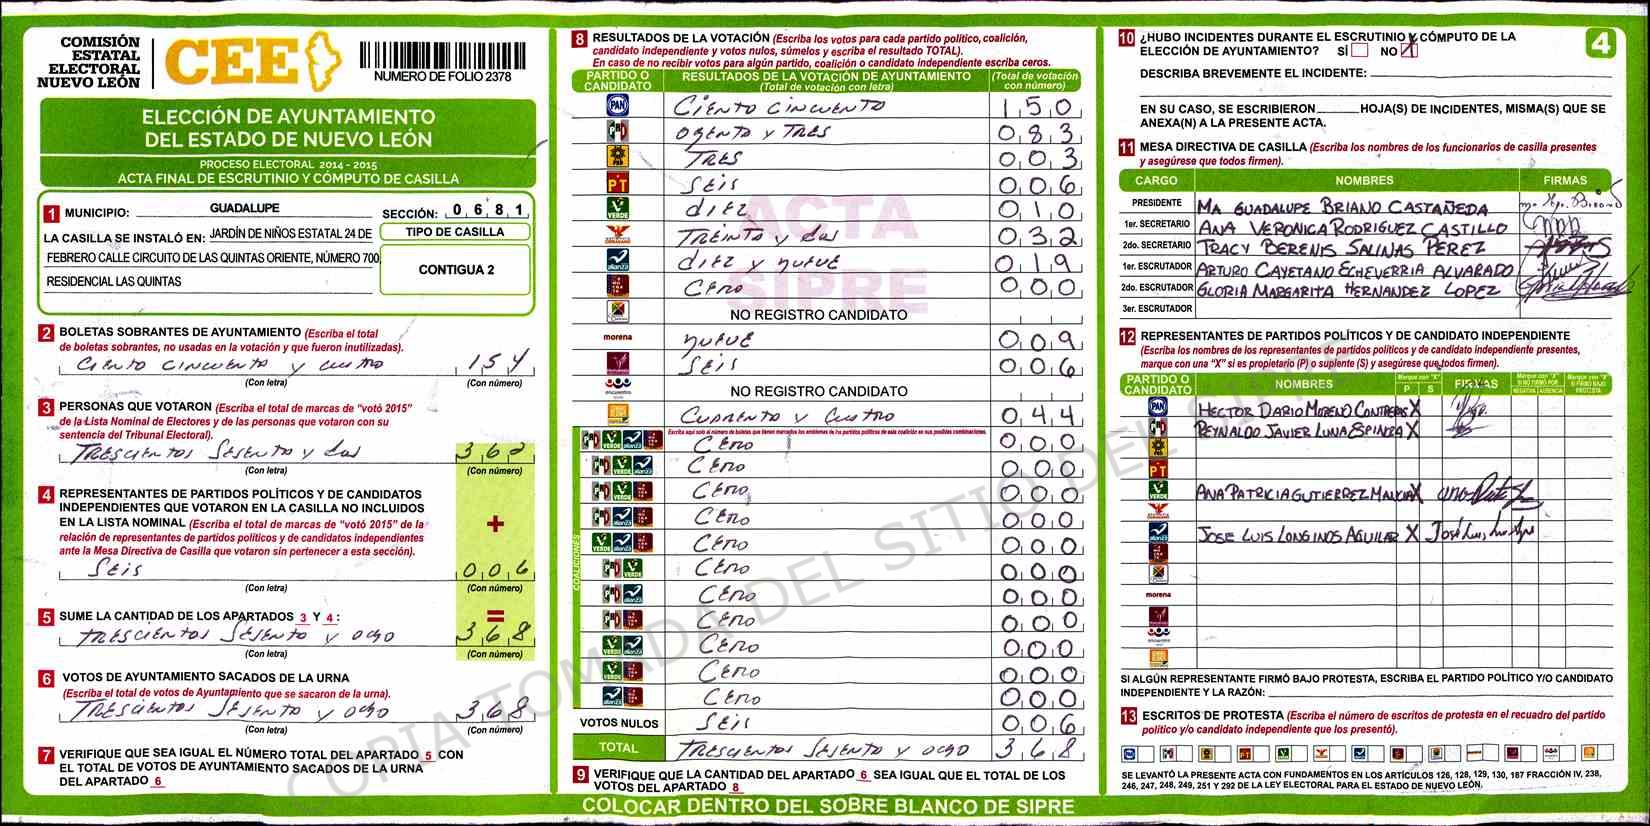 COMISIÓN
ESTATAL
ELECTORAL
NUEVO LEÓN
CEE
NUMERO DE FOLIO 2378
ELECCIÓN DE AYUNTAMIENTO
DEL ESTADO DE NUEVO LEÓN
PROCESO ELECTORAL 2014 - 2015
ACTA FINAL DE ESCRUTINIO Y CÓMPUTO DE CASILLA
1 MUNICIPIO: GUADALUPE SECCIÓN: 0 6 8 1
LA CASILLA SE INSTALÓ EN: JARDÍN DE NIÑOS ESTATAL 24 DE
FEBRERO CALLE CIRCUITO DE LAS QUINTAS ORIENTE, NÚMERO 700,
RESIDENCIAL LAS QUINTAS
TIPO DE CASILLA
CONTIGUA 2
2 BOLETAS SOBRANTES DE AYUNTAMIENTO (Escriba el total
de boletas sobrantes, no usadas en la votación y que fueron inutilizadas).
Ciento cincuenta y cuatro 154
(Con letra) (Con número)
3 PERSONAS QUE VOTARON (Escriba el total de marcas de “votó 2015”
de la Lista Nominal de Electores y de las personas que votaron con su
sentencia del Tribunal Electoral).
Trescientos sesenta y dos 362
(Con letra) (Con número)
4 REPRESENTANTES DE PARTIDOS POLÍTICOS Y DE CANDIDATOS
INDEPENDIENTES QUE VOTARON EN LA CASILLA NO INCLUIDOS
EN LA LISTA NOMINAL (Escriba el total de marcas de “votó 2015” de la
relación de representantes de partidos políticos y de candidatos independientes
ante la Mesa Directiva de Casilla que votaron sin pertenecer a esta sección).
+
Seis 006
(Con letra) (Con número)
5 SUME LA CANTIDAD DE LOS APARTADOS 3 Y 4: =
Trescientos sesenta y ocho 368
(Con letra) (Con número)
6 VOTOS DE AYUNTAMIENTO SACADOS DE LA URNA
(Escriba el total de votos de Ayuntamiento que se sacaron de la urna).
Trescientos sesenta y ocho 368
(Con letra) (Con número)
7 VERIFIQUE QUE SEA IGUAL EL NÚMERO TOTAL DEL APARTADO 5 CON
EL TOTAL DE VOTOS DE AYUNTAMIENTO SACADOS DE LA URNA
DEL APARTADO 6
8 RESULTADOS DE LA VOTACIÓN (Escriba los votos para cada partido político, coalición,
candidato independiente y votos nulos, súmelos y escriba el resultado TOTAL).
En caso de no recibir votos para algún partido, coalición o candidato independiente escriba ceros.
PARTIDO O CANDIDATO RESULTADOS DE LA VOTACIÓN DE AYUNTAMIENTO (Total de votación con letra) (Total de votación con número)
PAN Ciento cincuenta 150
PRD ogenta y tres 083
PRD Tres 003
PT Seis 006
VERDE diez 010
Treinta y dos 032
alianza diez y nueve 019
Cero 000
NO REGISTRO CANDIDATO
morena nueve 009
Seis 006
encuentro NO REGISTRO CANDIDATO
Cuarenta y cuatro 044
Escriba aquí solo el número de boletas que tienen marcados los emblemas de los partidos políticos de esta coalición en sus posibles combinaciones.
COALICIONES
Cero 000
Cero 000
Cero 000
Cero 000
Cero 000
Cero 000
Cero 000
Cero 000
Cero 000
Cero 000
Cero 000
VOTOS NULOS Seis 006
TOTAL Trescientos sesenta y ocho 368
9 VERIFIQUE QUE LA CANTIDAD DEL APARTADO 6 SEA IGUAL QUE EL TOTAL DE LOS
VOTOS DEL APARTADO 8
ACTA
SIPRE
COLOCAR DENTRO DEL SOBRE BLANCO DE SIPRE
COPIA TOMADA DEL SITIO DEL SIPRE
4
10 ¿HUBO INCIDENTES DURANTE EL ESCRUTINIO Y CÓMPUTO DE LA
ELECCIÓN DE AYUNTAMIENTO? SÍ NO X
DESCRIBA BREVEMENTE EL INCIDENTE:
EN SU CASO, SE ESCRIBIERON HOJA(S) DE INCIDENTES, MISMA(S) QUE SE
ANEXA(N) A LA PRESENTE ACTA.
11 MESA DIRECTIVA DE CASILLA (Escriba los nombres de los funcionarios de casilla presentes
y asegúrese que todos firmen).
CARGO NOMBRES FIRMAS
PRESIDENTE MA GUADALUPE BRIANO CASTAÑEDA
1er. SECRETARIO ANA VERONICA RODRIGUEZ CASTILLO
2do. SECRETARIO TRACY BERENIS SALINAS PEREZ
1er. ESCRUTADOR ARTURO CAYETANO ECHEVERRIA ALVARADO
2do. ESCRUTADOR GLORIA MARGARITA HERNANDEZ LOPEZ
3er. ESCRUTADOR
12 REPRESENTANTES DE PARTIDOS POLÍTICOS Y DE CANDIDATO INDEPENDIENTE
(Escriba los nombres de los representantes de partidos políticos y de candidato independiente presentes,
marque con una “X” si es propietario (P) o suplente (S) y asegúrese que todos firmen).
PARTIDO O CANDIDATO NOMBRES Marque con "X" P S FIRMAS
PAN HECTOR DARIO MORENO CONTRERAS X
REYNALDO JAVIER LUNA ESPINOZA X
PT
VERDE ANA PATRICIA GUTIERREZ X
JOSE LUIS LONGINOS AGUILAR X
morena
SI ALGÚN REPRESENTANTE FIRMÓ BAJO PROTESTA, ESCRIBA EL PARTIDO POLÍTICO Y/O CANDIDATO
INDEPENDIENTE Y LA RAZÓN:
13 ESCRITOS DE PROTESTA (Escriba el número de escritos de protesta en el recuadro del partido
político y/o candidato independiente que los presentó).
SE LEVANTÓ LA PRESENTE ACTA CON FUNDAMENTOS EN LOS ARTÍCULOS 126, 128, 129, 130, 187 FRACCIÓN IV, 238,
246, 247, 248, 249, 251 Y 292 DE LA LEY ELECTORAL PARA EL ESTADO DE NUEVO LEÓN.